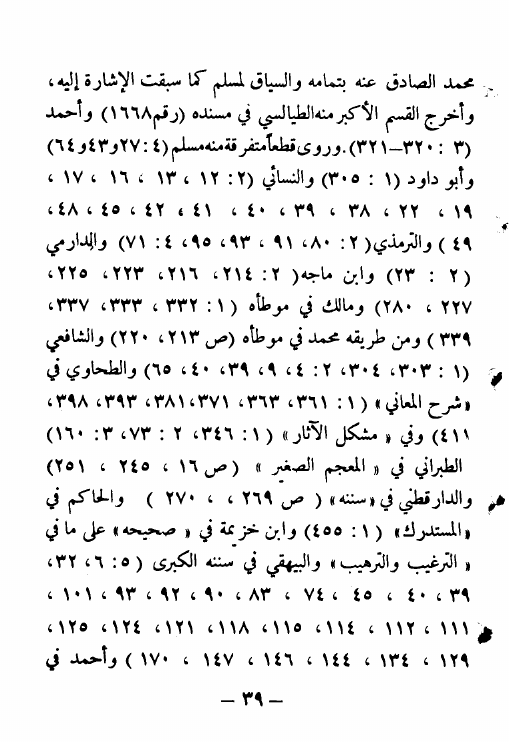 محمد الصادق عنه بتمامه والسياق لمسلم كما سبقت الإشارة إليه ،
وأخرج القسم الأكبر منه الطيالسي في مسنده (رقم١٦٦٨) وأحمد
(٣ : ٣٢٠–٣٢١). وروى قطعاً متفرقة منه مسلم (٤ : ٢٧و٤٣و٦٤)
وأبو داود (١ : ٣٠٥) والنسائي (٢ : ١٢ ، ١٣ ، ١٦ ، ١٧ ،
١٩ ، ٢٢ ، ٣٨ ، ٣٩ ، ٤٠ ، ٤١ ، ٤٢ ، ٤٥ ، ٤٨ ،
٤٩ ) والترمذي (٢ : ٨٠ ، ٩١ ، ٩٣ ، ٩٥ ، ٤ : ٧١) والدارمي
(٢ : ٢٣) وابن ماجه( ٢ : ٢١٤، ٢١٦، ٢٢٣، ٢٢٥،
٢٢٧ ، ٢٨٠) ومالك في موطأه (١ : ٣٣٢ ، ٣٣٣ ، ٣٣٧،
٣٣٩ ) ومن طريقه محمد في موطأه (ص ٢١٣، ٢٢٠) والشافعي
(١ : ٣٠٣، ٣٠٤، ٢ : ٤، ٩، ٣٩، ٤٠، ٦٥) والطحاوي في
«شرح المعاني» (١ : ٣٦١، ٣٦٣، ٣٧١،٣٨١، ٣٩٣، ٣٩٨،
٤١١) وفي « مشكل الآثار» (١ : ٣٤٦، ٢ : ٧٣، ٣ : ١٦٠)
الطبراني في « المعجم الصغير » (ص ١٦ ، ٢٤٥ ، ٢٥١)
والدارقطني في «سننه» ( ص ٢٦٩ ، ، ٢٧٠ ) والحاكم في
«المستدرك» (١ : ٤٥٥) وابن خزيمة في « صحيحه» على ما في
« الترغيب والترهيب» والبيهقي في سننه الكبرى (٥ : ٦ ، ٣٢،
٣٩ ، ٤٠ ، ٤٥ ، ٧٤ ، ٨٣ ، ٩٠ ، ٩٢ ، ٩٣ ، ١٠١ ،
١١١ ، ١١٢ ، ١١٤، ١١٥، ١١٨، ١٢١، ١٢٤، ١٢٥،
١٢٩ ، ١٣٤ ، ١٤٤ ، ١٤٦ ، ١٤٧ ، ١٧٠ ) وأحمد في
– ٣٩ –